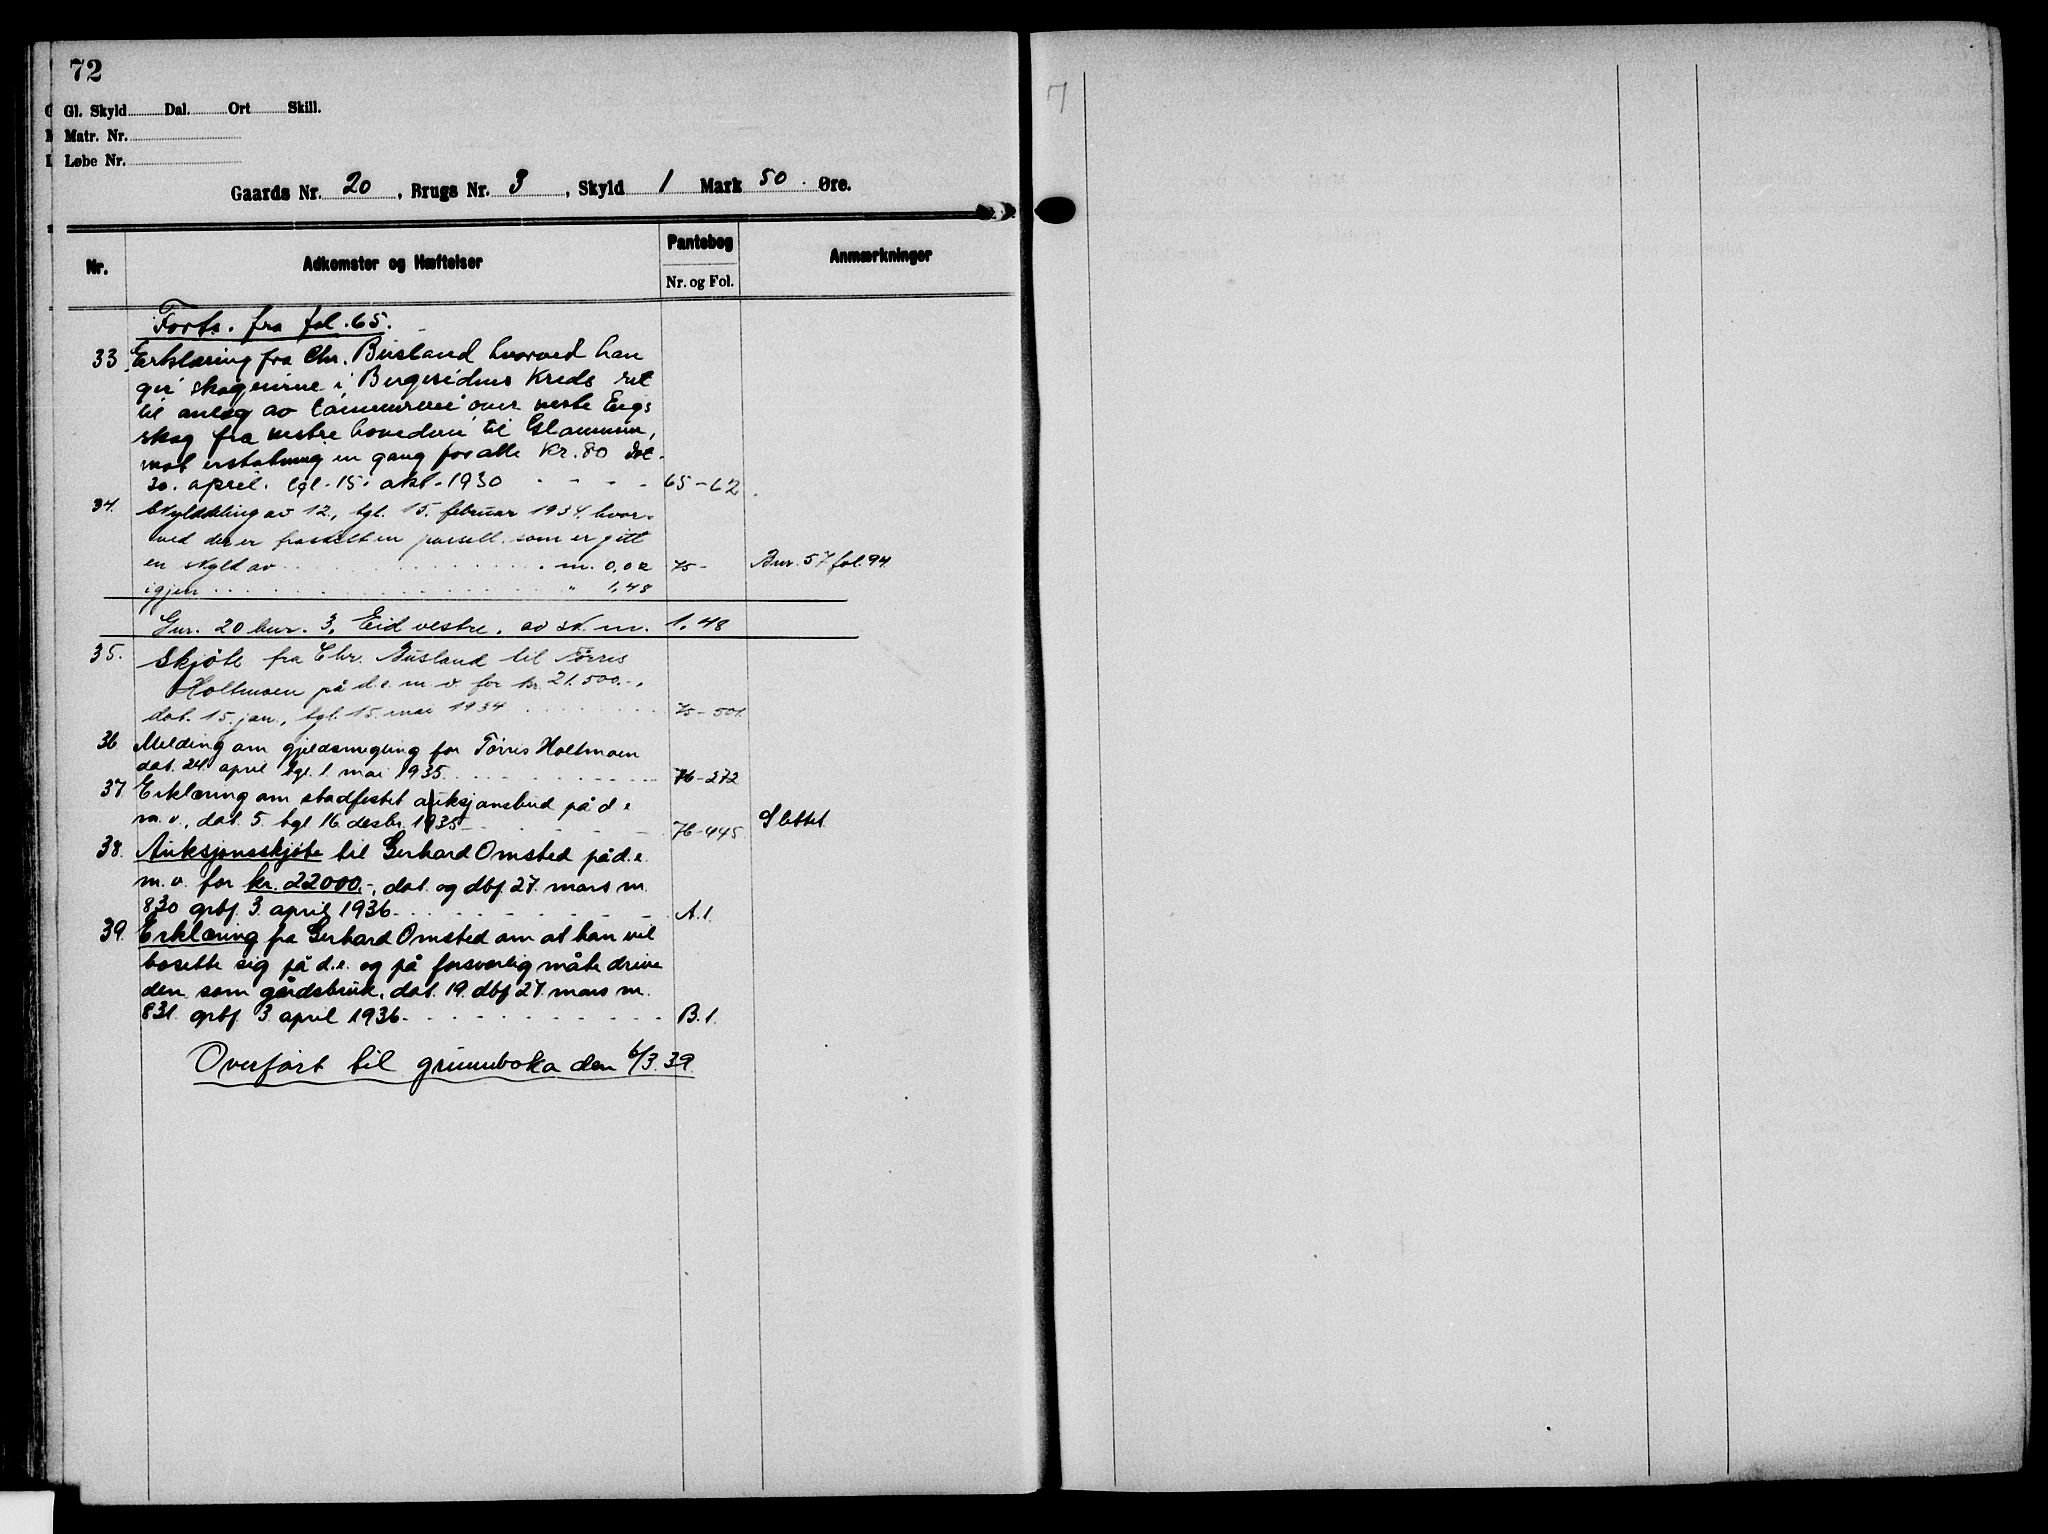 72
Gl. Skyld Dal. Ort Skill.
Matr. Nr.
Løbe Nr.
Gaards Nr. 20, Brugs Nr. 3, Skyld 1 Mark 50 Øre.
Nr. Adkomster og Hæftelser Pantebog Nr. og Fol. Anmærkninger
Forts. fra fol. 65.
33 Erklæring fra Chr. Busland hvorved han
gir skogeierne i Bergesidens Kreds ret
til anlæg av tømmervei over vestre Eigs
skog fra vestre hovedvei til Glommen,
mot erstatning en gang for alle Kr. 80 Dat.
30. april. tgl. 15. okt. 1930 65-62
34. Skylddeling av 12., tgl. 15. februar 1934. hvor-
ved der er fraskilt en parsell. som er gitt
en skyld av m. 0,02 75- Bnr. 57 fol. 94
igjen " 1,48
Gnr. 20 bnr. 3, Eid vestre. av sk. m. 1.48
35. Skjøte fra Chr. Busland til Tørris
Holtmoen på d.e. m v. for kr. 21.500.-,
dat. 15. jan., tgl. 15. mai 1934 75-501.
36 Melding om gjeldsmegling for Tørris Holtmoen
dat. 24. april tgl. 1 mai 1935 76-272
37 Erklæring om stadfestet auksjonsbud på d e
m. v., dat. 5. tgl 16. desbr. 1935 76-445. Slettet
38. Auksjonsskjøte til Gerhard Omsted på d. e.
m. v. for kr. 22000.-, dat. og dbf. 27. mars nr.
830 grbf. 3. april 1936. A. 1.
39. Erklæring fra Gerhard Omsted om at han vil
bosette sig på d.e. og på forsvarlig måte drive
den som gårdsbruk, dat. 19. dbf 27. mars nr.
831. grbf. 3. april 1936. B. 1.
Overført til grunnboka den 6/3. 39